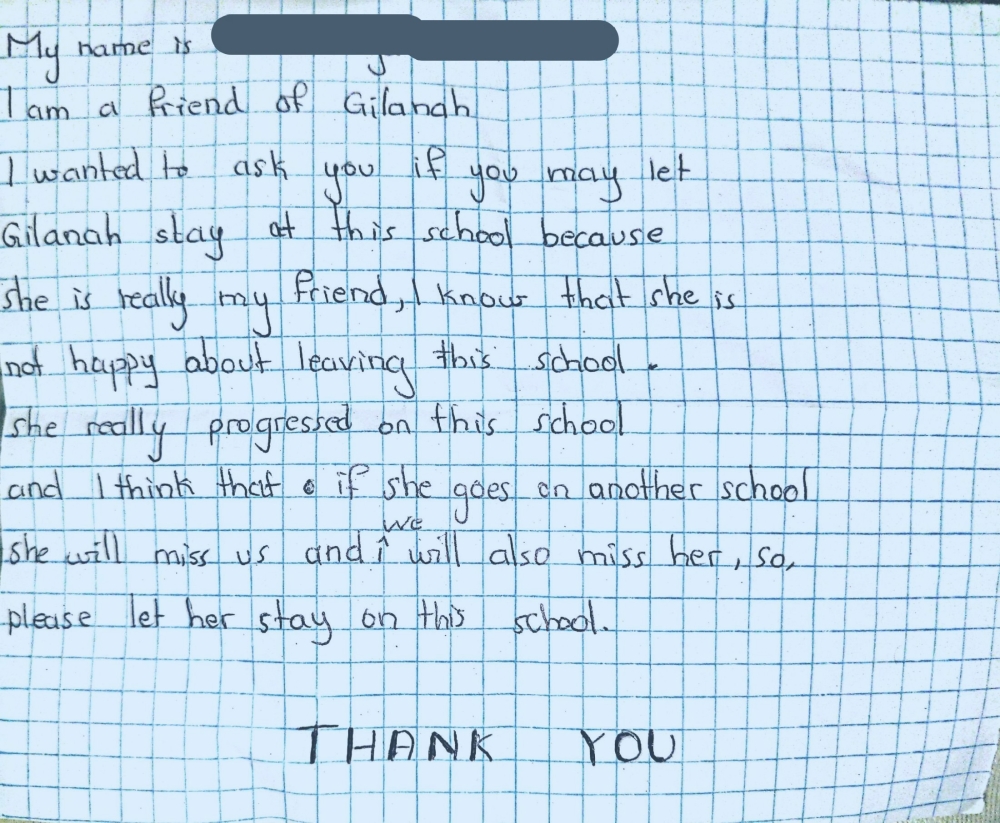 My name is
I am a friend of Gilanah
I wanted to ask you if you may let
Gilanah stay at this school because
she is really my friend, I know that she is
not happy about leaving this school.
she really progressed on this school
and I think that if she goes on another school
she will miss us and we will also miss her, so,
please let her stay on this school.
THANK YOU